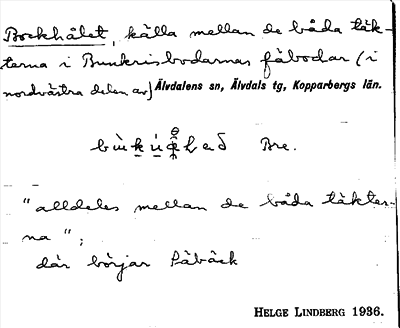 Bockhålet, källa mellan de båda täk-
terna i Bunkrisbodarnas fäbodar (i
nordvästra delen av) Älvdalens sn, Älvdals tg, Kopparbergs län.
Bre.
"alldeles mellan de båda täkter-
na";
där börjar Påbäck
HELGE LINDBERG 1936.